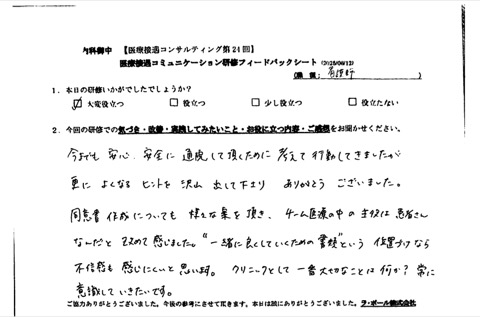 内科御中 【医療接遇コンサルティング第24回】
医療接遇コミュニケーション研修フィードバックシート (2025/06/12)
(職種: 看護師 )
1. 本日の研修いかがでしたでしょうか?
☑ 大変役立つ □ 役立つ □ 少し役立つ □ 役立たない
2. 今回の研修での気づき・改善・実践してみたいこと・お役に立つ内容・ご感想をお聞かせください。
今までも 安心、安全に 通院して頂くために 考えて 行動してきましたが
更に よくなる ヒントを 沢山 出して下さり ありがとう ございました。
同意書 作成についても 様々な案を頂き、チーム医療の中の 主役は 患者さん
なんだと 改めて 感じました。“一緒に良くしていくための書類”という 位置づけなら
不信感も 感じにくいと 思います。 クリニックとして 一番大切なことは 何か? 常に
意識して いきたいです。
ご協力ありがとうございました。今後の参考にさせて頂きます。本日は誠にありがとうございました。ラ・ポール株式会社